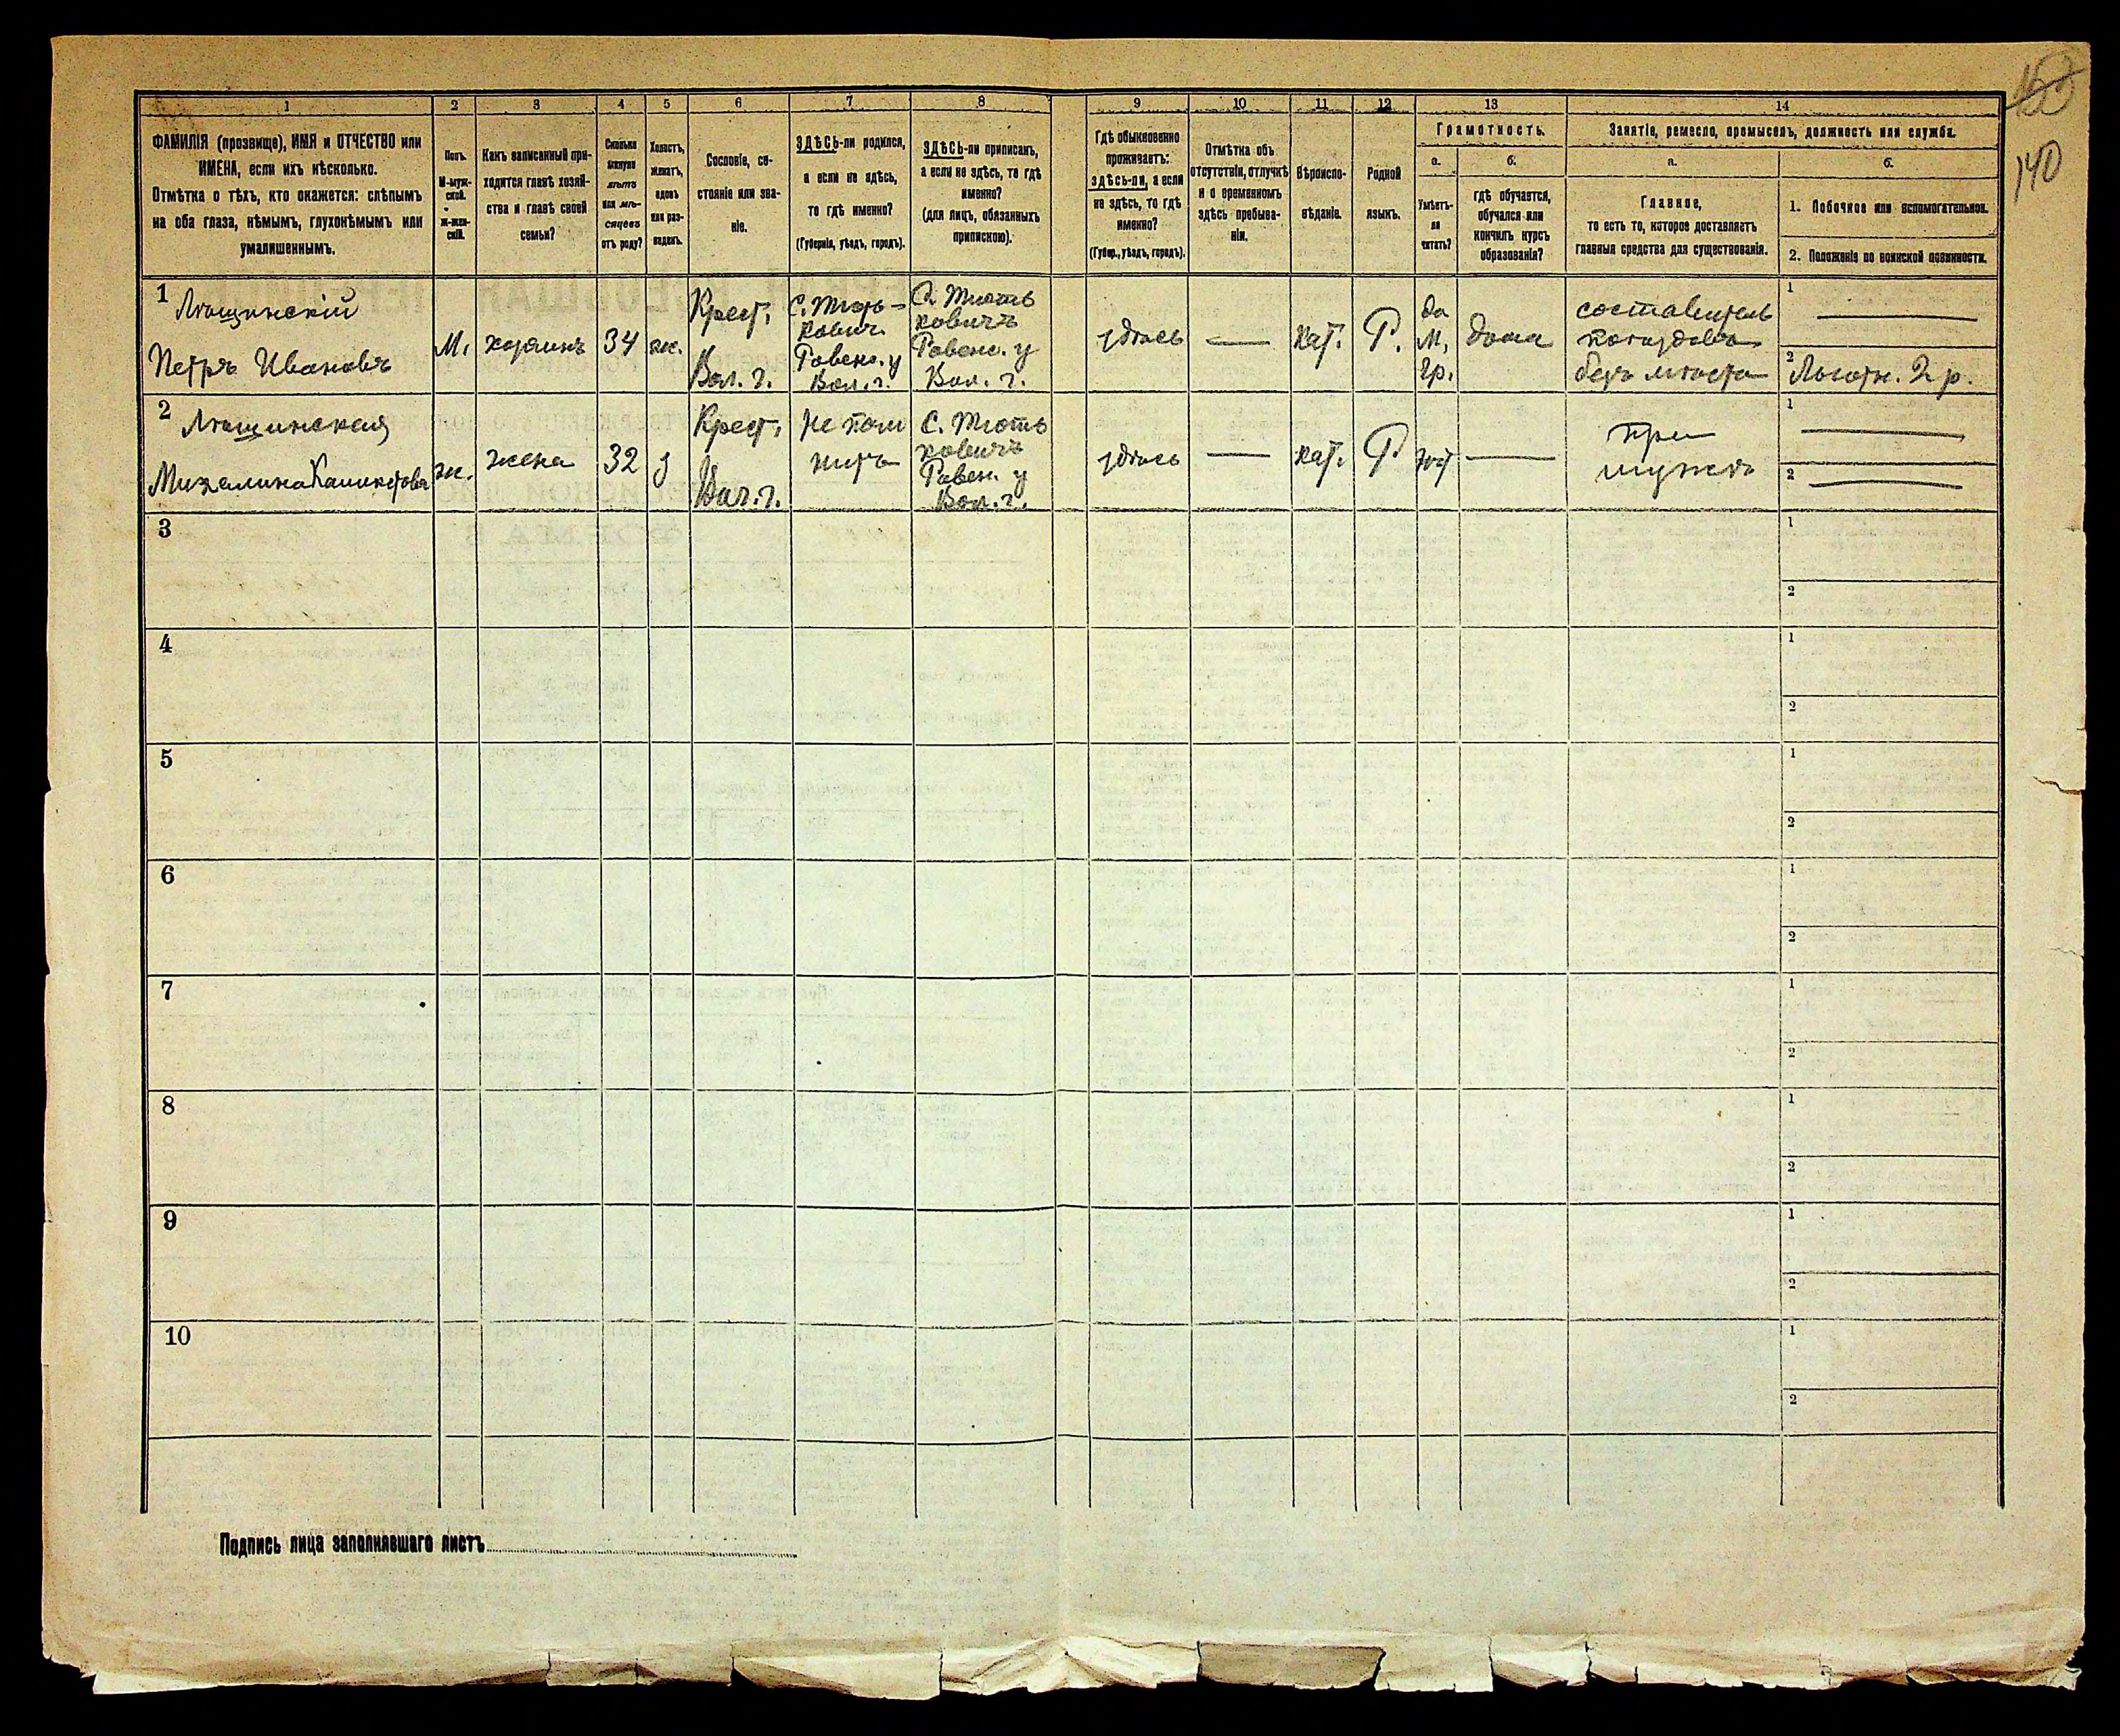 140
1 2 3 4 5 6 7 8 9 10 11 12 13 14
ФАМИЛІЯ (прозвище), ИМЯ и ОТЧЕСТВО или
ИМЕНА, если ихъ нѣсколько.
Отмѣтка о тѣхъ, кто окажется: слѣпымъ
на оба глаза, нѣмымъ, глухонѣмымъ или
умалишеннымъ.
Полъ.
М-муж-
ской.
ж-жен-
скій.
Какъ записанный при-
ходится главѣ хозяй-
ства и главѣ своей
семьи?
Сколько
минуло
лѣтъ
или мѣ-
сяцевъ
отъ роду?
Холостъ,
женатъ,
вдовъ
или раз-
веденъ.
Сословіе, со-
стояніе или зва-
ніе.
ЗДѢСЬ-ли родился,
а если не здѣсь,
то гдѣ именно?
(Губернія, уѣздъ, городъ).
ЗДѢСЬ-ли приписанъ,
а если не здѣсь, то гдѣ
именно?
(для лицъ, обязанныхъ
припискою).
Гдѣ обыкновенно
проживаетъ:
здѣсь-ли, а если
не здѣсь, то гдѣ
именно?
(Губер., уѣздъ, городъ).
Отмѣтка объ
отсутствіи, отлучкѣ
и о временномъ
здѣсь пребыва-
ніи.
Вѣроиспо-
вѣданіе.
Родной
языкъ.
Грамотность.
а. б.
Умѣетъ-
ли
читать?
гдѣ обучается,
обучался или
кончилъ курсъ
образованія?
Занятіе, ремесло, промыселъ, должность или служба.
а. б.
Главное,
то есть то, которое доставляетъ
главныя средства для существованія.
1. Побочное или вспомогательное.
2. Положеніе по воинской повинности.
1
Лѣщинскій
Петръ Ивановъ
М.
хозяинъ
34
ж.
Крест.
Вол. г.
Ровенс. у
Вол. г.
С. Тють
ковичъ
Ровенс. у
Вол. г.
здѣсь
—
Кат.
Р.
да
М,
гр.
дома
составитель
поѣздовъ
безъ мѣста
1 —
2 Льготн. 2 р.
2
Лѣщинская
Михалина
ж.
жена
32
з
Крест.
Вол. г.
Не пом
нитъ
С. Тють
ковичъ
Ровен. у
Вол. г.
здѣсь
—
Кат.
Р
нѣт
—
при
мужѣ
1 —
2 —
3
1
2
4
1
2
5
1
2
6
1
2
7
1
2
8
1
2
9
1
2
10
1
2
Подпись лица заполнявшаго листъ